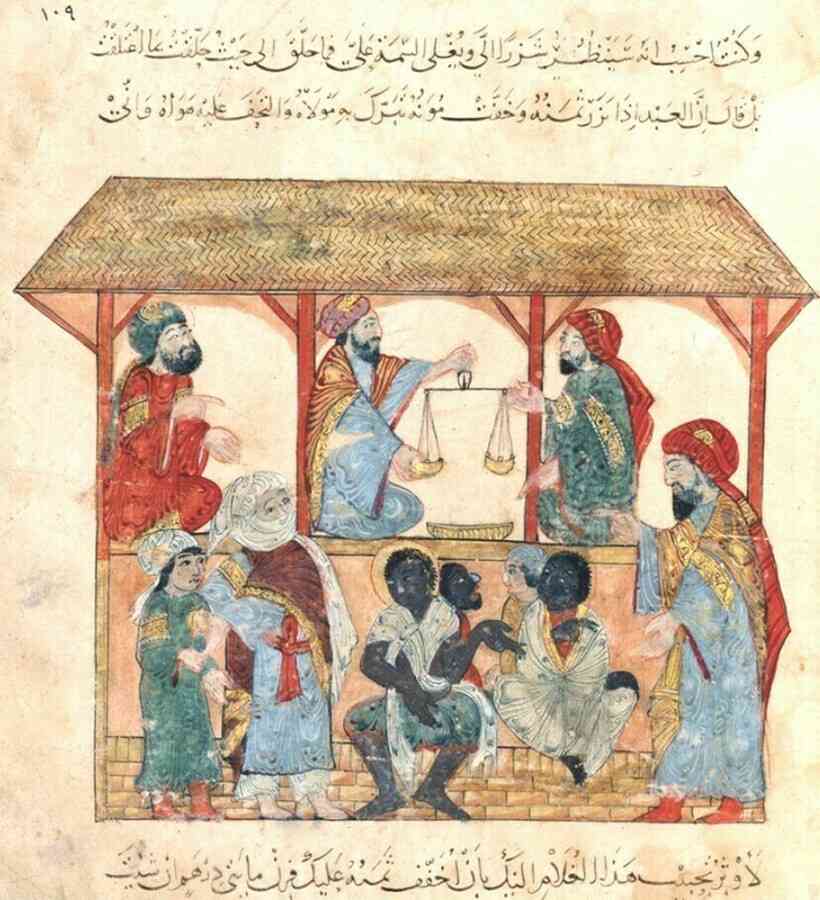 ١٠٩
وكنت احسب انه سينظر شزرا الي ويغلى السيمة علي فما حلق الى حيث حلقت ولا اعتلق بما اعتلقت
بل قال ان العبد اذا نزر ثمنه وخفت مونه تبرك به مولاه والتحف عليه هواه واني
لاوثر تحبيب هذا الغلام اليك بان اخفف ثمنه عليك فزن مايتي درهم ان شيت